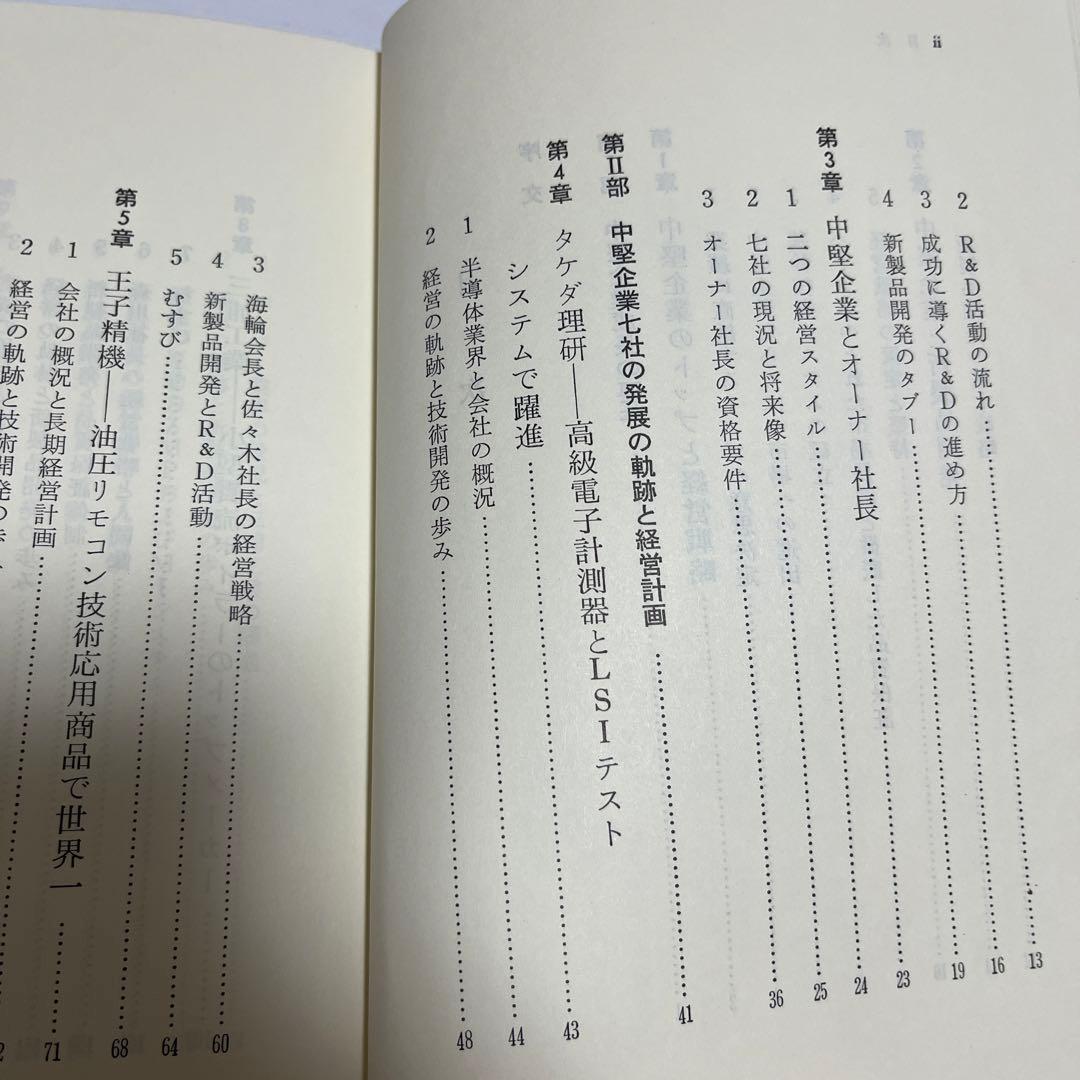 ii
2 R&D活動の流れ……13
3 成功に導くR&Dの進め方……16
4 新製品開発のタブー……19
第3章 中堅企業とオーナー社長……23
1 二つの経営スタイル……24
2 七社の現況と将来像……25
3 オーナー社長の資格要件……36
第Ⅱ部 中堅企業七社の発展の軌跡と経営計画……41
第4章 タケダ理研――高級電子計測器とLSIテスト
システムで躍進……43
1 半導体業界と会社の概況……44
2 経営の軌跡と技術開発の歩み……48
3 海輪会長と佐々木社長の経営戦略……60
4 新製品開発とR&D活動……64
5 むすび……68
第5章 王子精機――油圧リモコン技術応用商品で世界一……71
1 会社の概況と長期経営計画……2
2 経営の軌跡と技術開発の